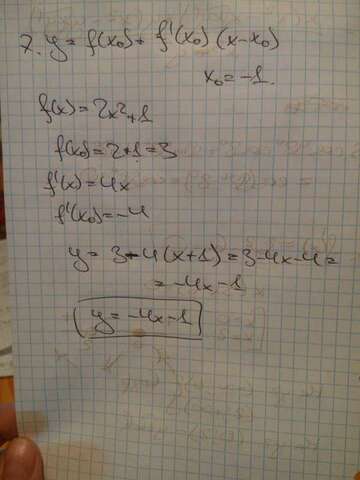 7. y = f(x₀) + f'(x₀) (x-x₀)
x₀ = -1.
f(x) = 2x²+1
f(x₀) = 2+1 = 3
f'(x) = 4x
f'(x₀) = -4
y = 3-4(x+1) = 3-4x-4 =
= -4x-1
y = -4x-1